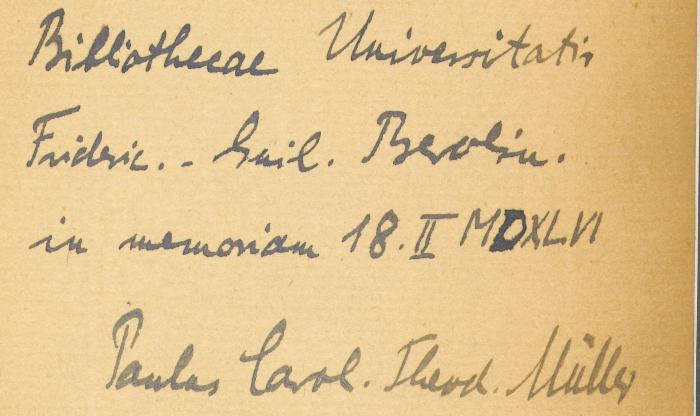 Bibliothecae Universitatis
Frideric.- Guil. Berolin.
in memoriam 18.II MDXLVI
Paulus Carol. Theod. Müller